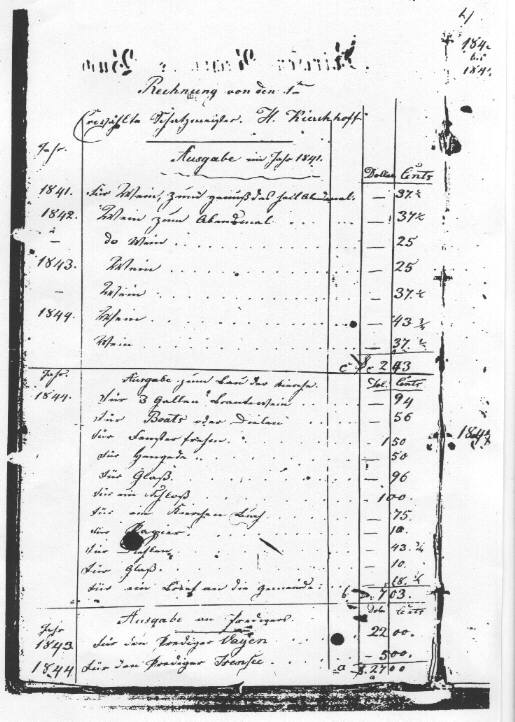 4)
184
bis
184
Rechnung von den 1ten
erwählten Schatzmeister. H. Kirchhoff
Ausgabe im Jahr 1841.
Jahr. Dollar Cents
1841. für Wein, zum genuß des heil Abendmal. — 37 ½
1842. Wein zum Abendmal — 37 ½
— do Wein — 25
1843. Wein — 25
— Wein — 37 ½
1844. Wein — 43 ¾
Wein — 37 ½
c $ 2 43
Jahr. Ausgabe zum Bau der Kirche. Dol. Cents
1844. Für 3 Gallen Brantewein 94
Für Boats oder Dielen — 56
für Fenster 1 50
für — 50
Für Glaß — 96
für ein Schloß 1 00
für ein Kirchen Buch — 75
für Papier — 10
für 43 ¾
für Glaß 10
für ein Brief an die Gemeinde 18 ¾
b 7 03
Ausgabe an Predigers Dols Cents
Jahr
1843 für den Prediger 22 00
1844 für den Prediger 5 00
a $ 27 00